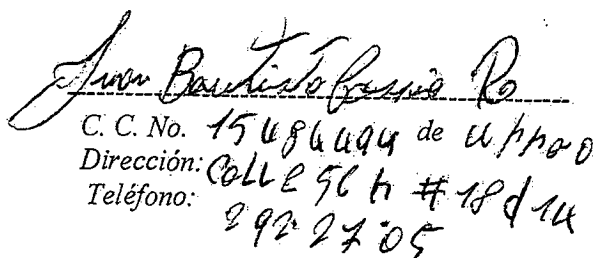 Juan Bautista Ro
C. C. No. 15484494 de urrao
Dirección: Calle 56 h # 18 d 14
Teléfono: 292 27 05